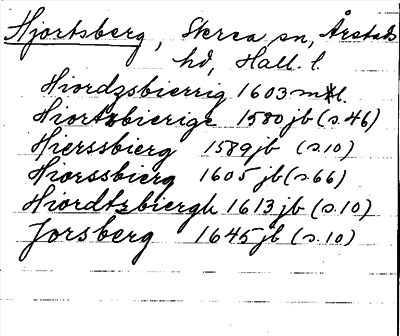 Hjortsberg, Skrea sn, Årstads
hd, Hall. l.
Hiordzsbierrig 1603 mtl.
Hiortsbierige 1580 jb (s.46)
Hierssbierg 1589 jb (s.10)
Hiorssbierg 1605 jb (s.66)
Hiordtzbiergh 1613 jb (s.10)
Jorsberg 1645 jb (s.10)